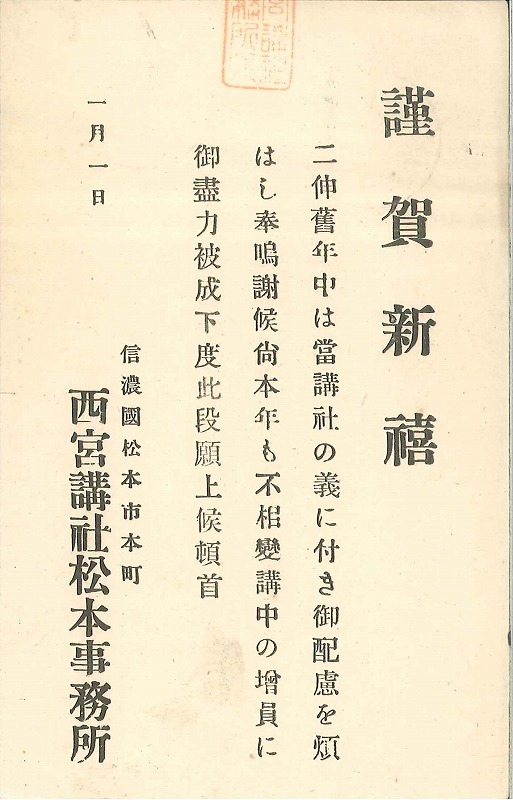 謹賀新禧
二伸舊年中は當講社の義に付き御配慮を煩
はし奉鳴謝候尙本年も不相變講中の增員に
御盡力被成下度此段願上候頓首
一月一日
信濃國松本市本町
西宮講社松本事務所